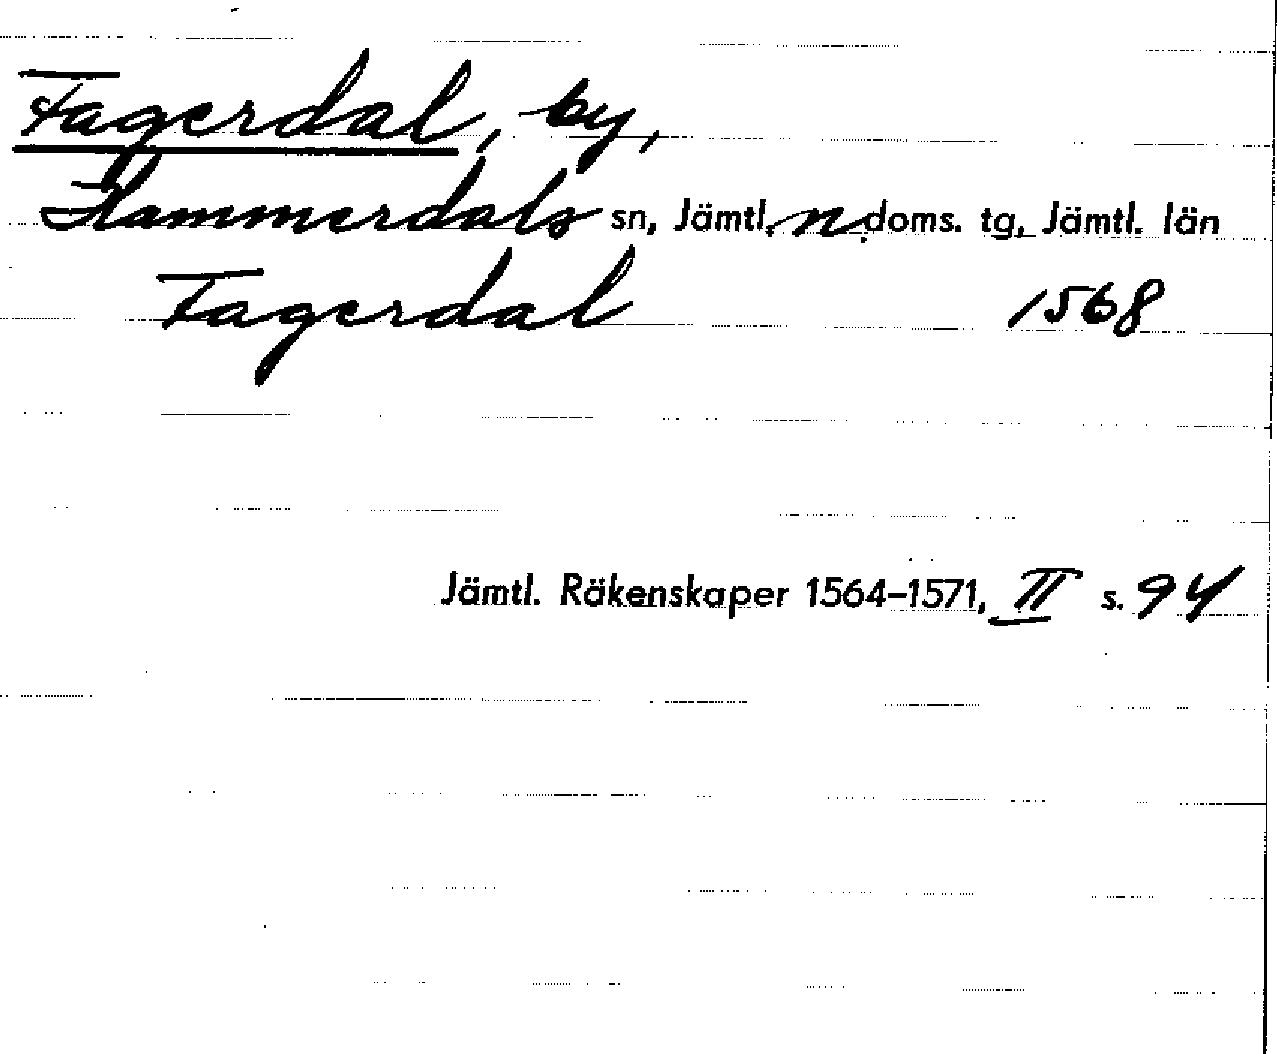 Fagerdal, by,
Hammerdals sn, Jämtl. n. doms. tg, Jämtl. län
Fagerdal 1568
Jämtl. Räkenskaper 1564–1571, II s. 94